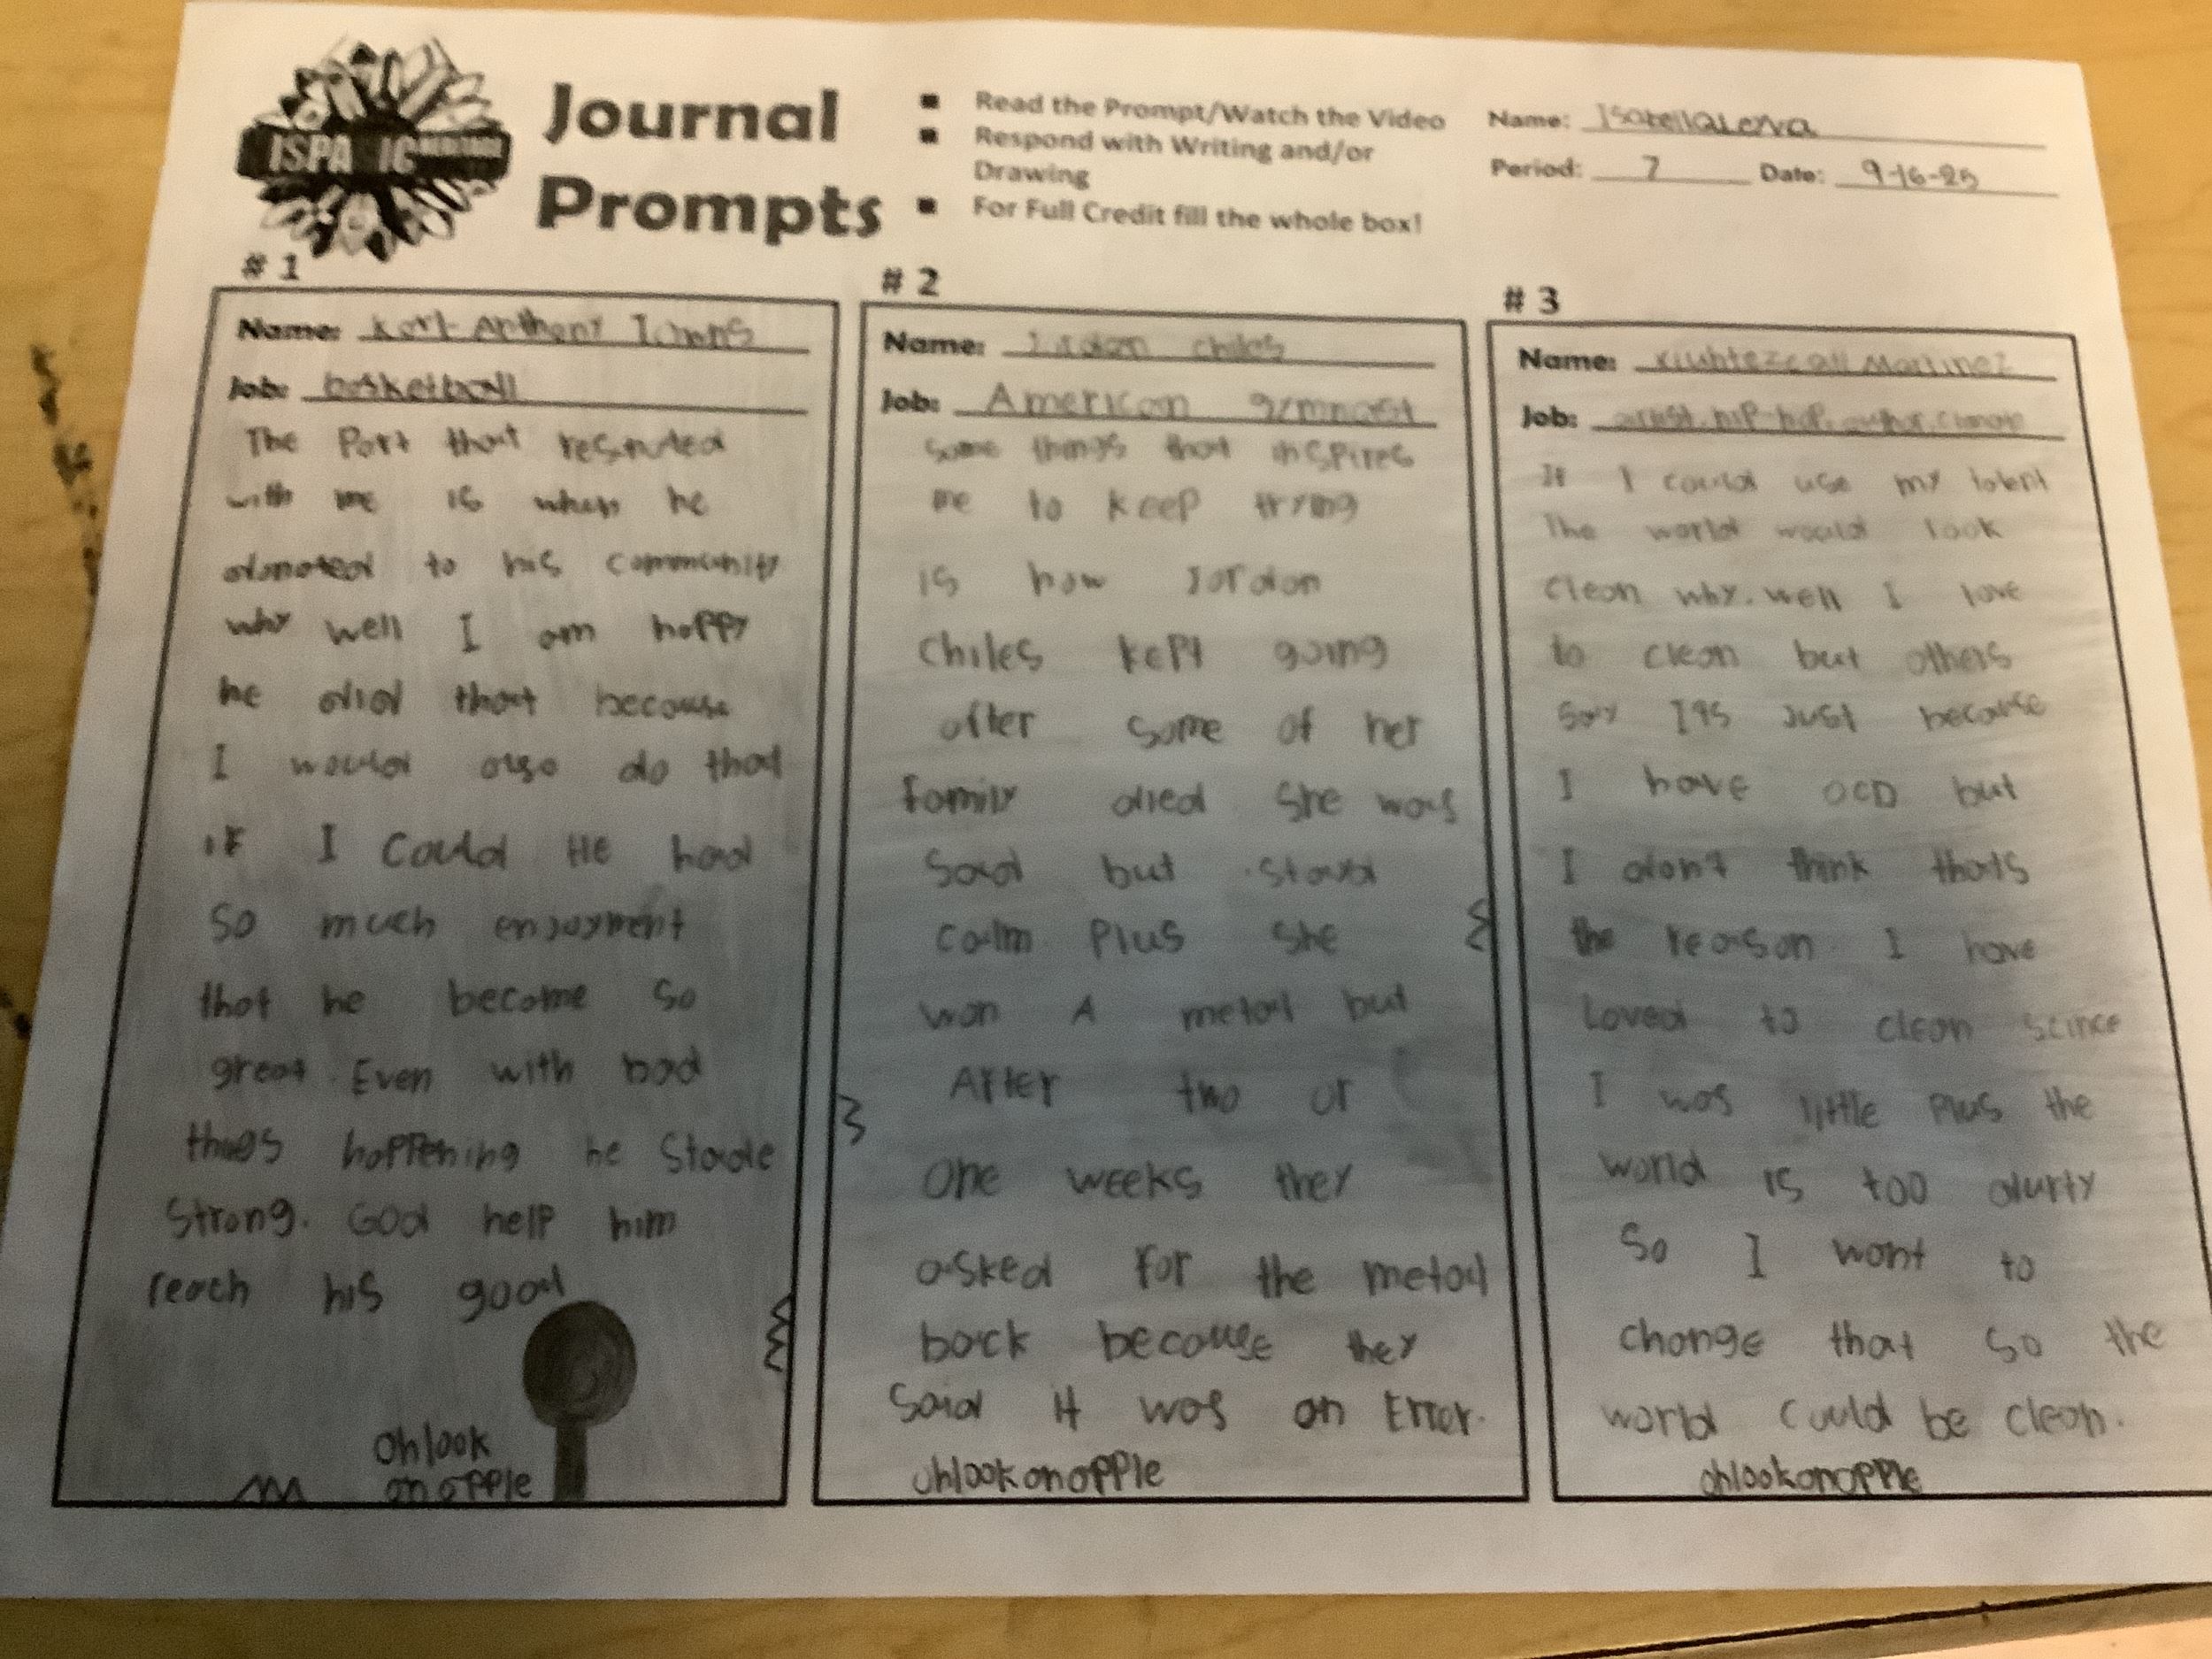 ISPA IC
Journal
Prompts
■ Read the Prompt/Watch the Video
■ Respond with Writing and/or
Drawing
■ For Full Credit fill the whole box!
Name: Isabella
Period: 7 Date: 9-16-25
# 1
Name: Karl-Anthony Towns
Job: basketball
The Part that
with me is when he
donated to his community
why well I am happy
he did that because
I would also do that
if I could He had
So much enjoyment
that he become so
great. Even with bad
things happening he Stade
Strong. God help him
reach his goal
oh look
an apple
# 2
Name: Jordan chiles
Job: American gymnast
Some things that inspires
me to keep trying
is how Jordan
Chiles kept going
after some of her
family died she was
Sad but stayd
calm Plus she
won A metal but
After two or
one weeks they
asked for the metal
back because they
Said it was an Error.
oh look an apple
# 3
Name: Martinez
Job: artist, hip-hop, author, climate
If I could use my talent
The world would look
clean why. well I love
to clean but others
say Its Just because
I have OCD but
I don't think thats
the reason I have
Loved to clean scince
I was little Plus the
world is too durty
So I want to
change that so the
world could be clean.
oh look an apple